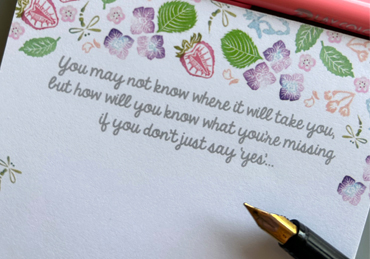 You may not know where it will take you,
but how will you know what you're missing
if you don't just say 'yes'...